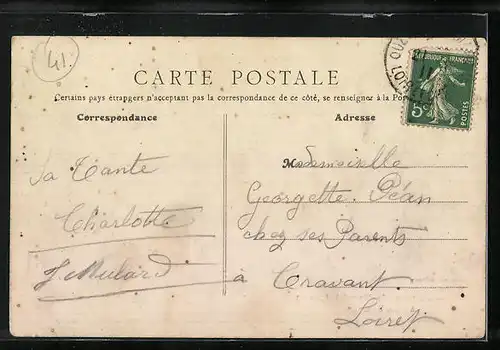 41.
CARTE POSTALE
Certains pays étrangers n'acceptant pas la correspondance de ce côté, se renseigner à la
Correspondance
Adresse
REPUBLIQUE FRANÇAISE
5
POSTES
Sa Tante
Charlotte
Mademoiselle
Georgette Péan
chez ses Parents
à Cravant
Loiret